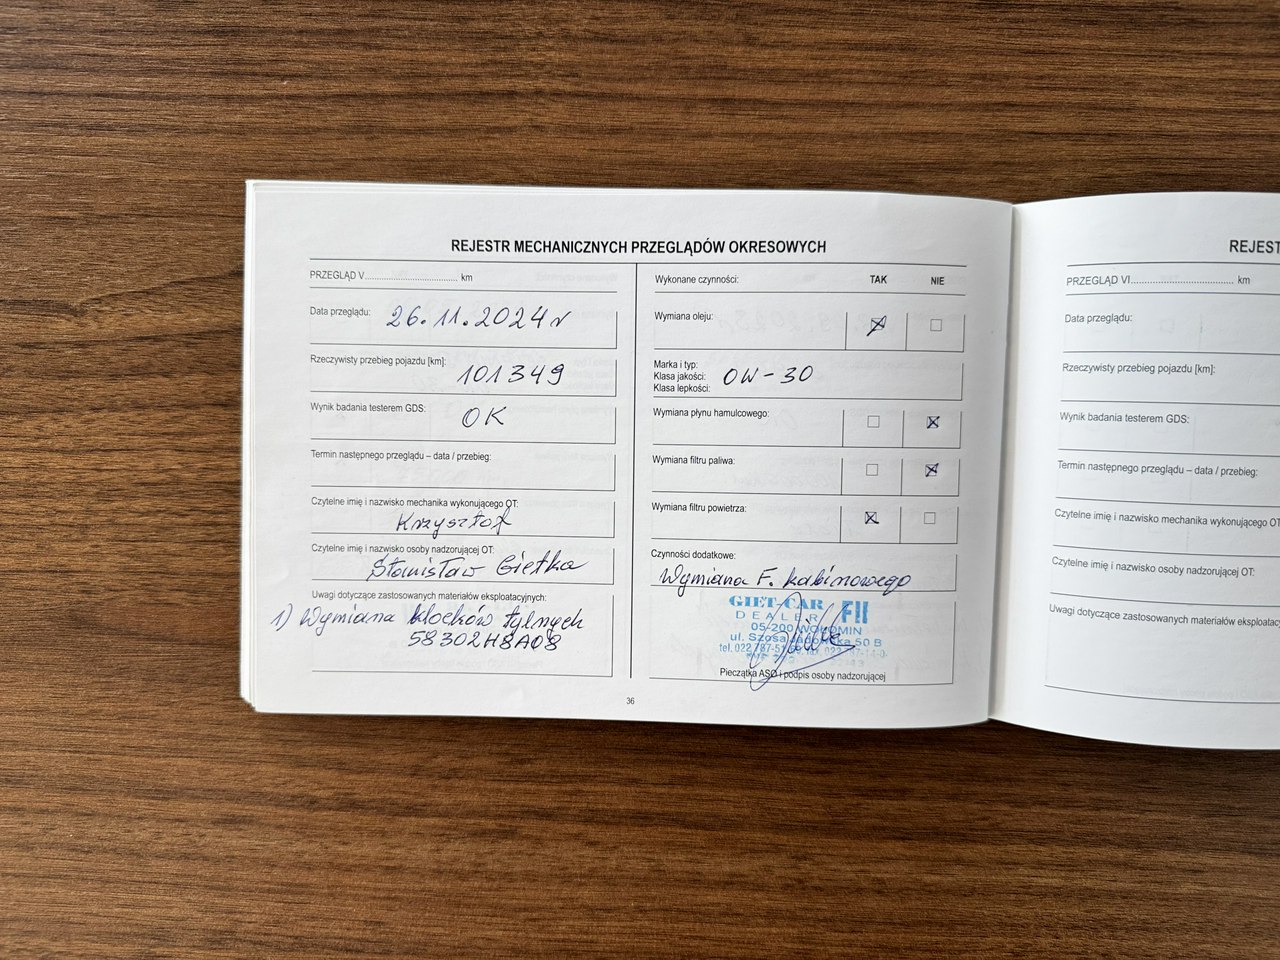 REJESTR MECHANICZNYCH PRZEGLĄDÓW OKRESOWYCH
PRZEGLĄD V.................................. km
Data przeglądu: 26.11.2024r
Rzeczywisty przebieg pojazdu [km]: 101349
Wynik badania testerem GDS: OK
Termin następnego przeglądu – data / przebieg:
Czytelne imię i nazwisko mechanika wykonującego OT:
Krzysztof
Czytelne imię i nazwisko osoby nadzorującej OT:
Stanisław Gietka
Uwagi dotyczące zastosowanych materiałów eksploatacyjnych:
1) Wymiana klocków tylnych
58302H8A08
Wykonane czynności: TAK NIE
Wymiana oleju:
Marka i typ:
Klasa jakości: 0W-30
Klasa lepkości:
Wymiana płynu hamulcowego:
Wymiana filtru paliwa:
Wymiana filtru powietrza:
Czynności dodatkowe:
Wymiana F. kabinowego
GIET CAR
DEALER
05-200 WOŁOMIN
ul. Szosa Jadowska 50 B
Pieczątka ASO i podpis osoby nadzorującej
36
REJEST
PRZEGLĄD VI.................................. km
Data przeglądu:
Rzeczywisty przebieg pojazdu [km]:
Wynik badania testerem GDS:
Termin następnego przeglądu – data / przebieg:
Czytelne imię i nazwisko mechanika wykonującego OT
Czytelne imię i nazwisko osoby nadzorującej OT:
Uwagi dotyczące zastosowanych materiałów eksploatacy